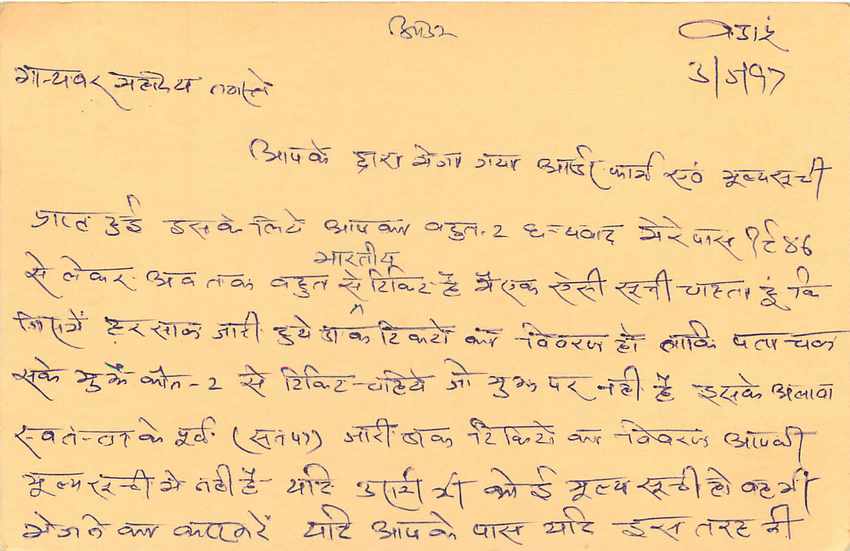 3/5/97
मान्यवर महोदय नमस्ते
आपके द्वारा भेजा गया आर्डर फार्म एवं मूल्यसूची
प्राप्त हुई इसके लिये आपका बहुत-2 धन्यवाद मेरे पास
से लेकर अब तक बहुत से भारतीय टिकिट है मै एक ऐसी सूची चाहता हूं कि
जिसमें हर साल जारी हुये डाक टिकटों का विवरण हो ताकि पता चल
सके मुझे कौन-2 से टिकिट चाहिये जो मुझ पर नही है इसके अलावा
के पूर्व जारी डाक टिकिटो का विवरण आपकी
मूल्य सूची मे नही है यदि कोई मूल्य सूची हो वह भी
भेजने का करें यदि आप के पास यदि इस तरह की